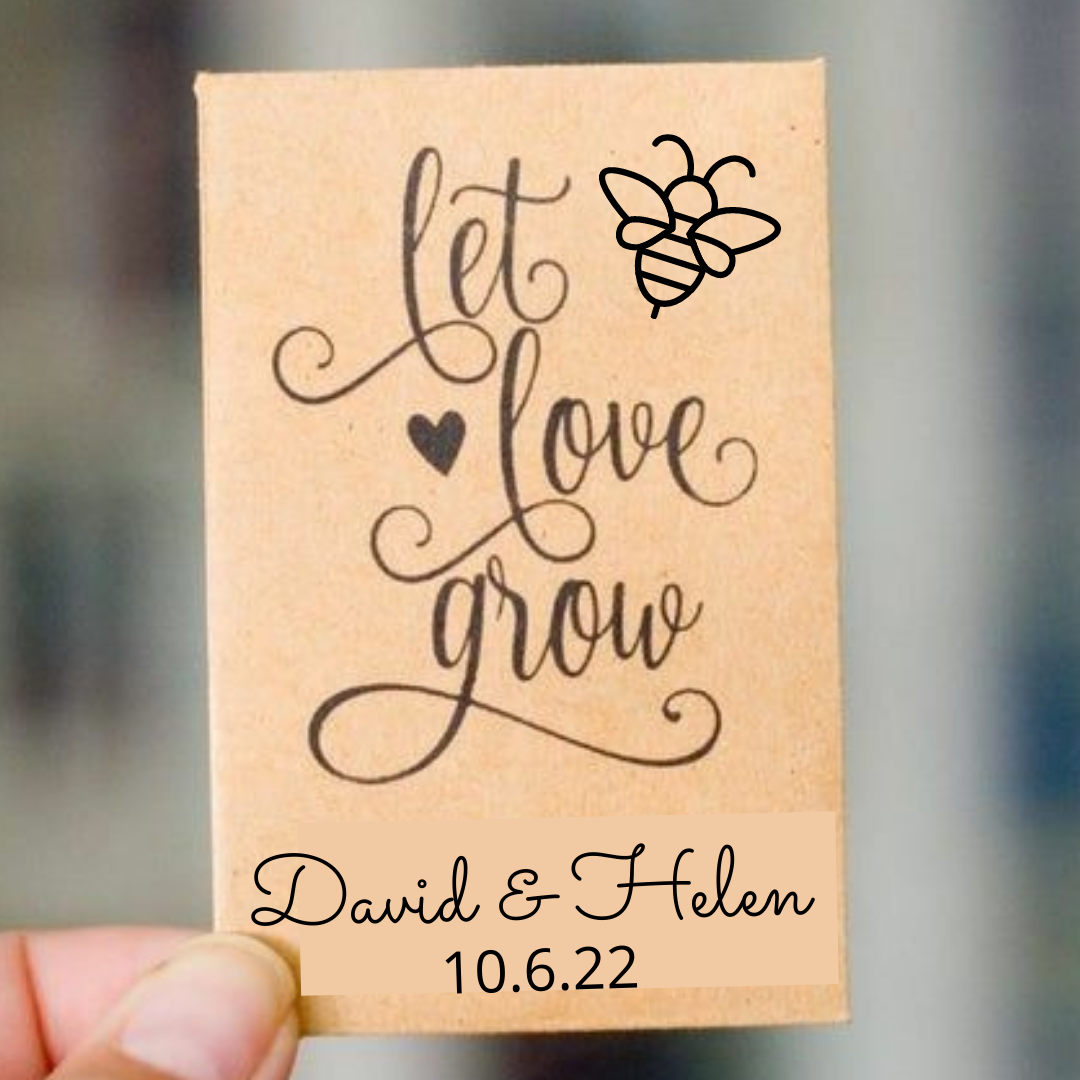 let
love
grow
David & Helen
10.6.22